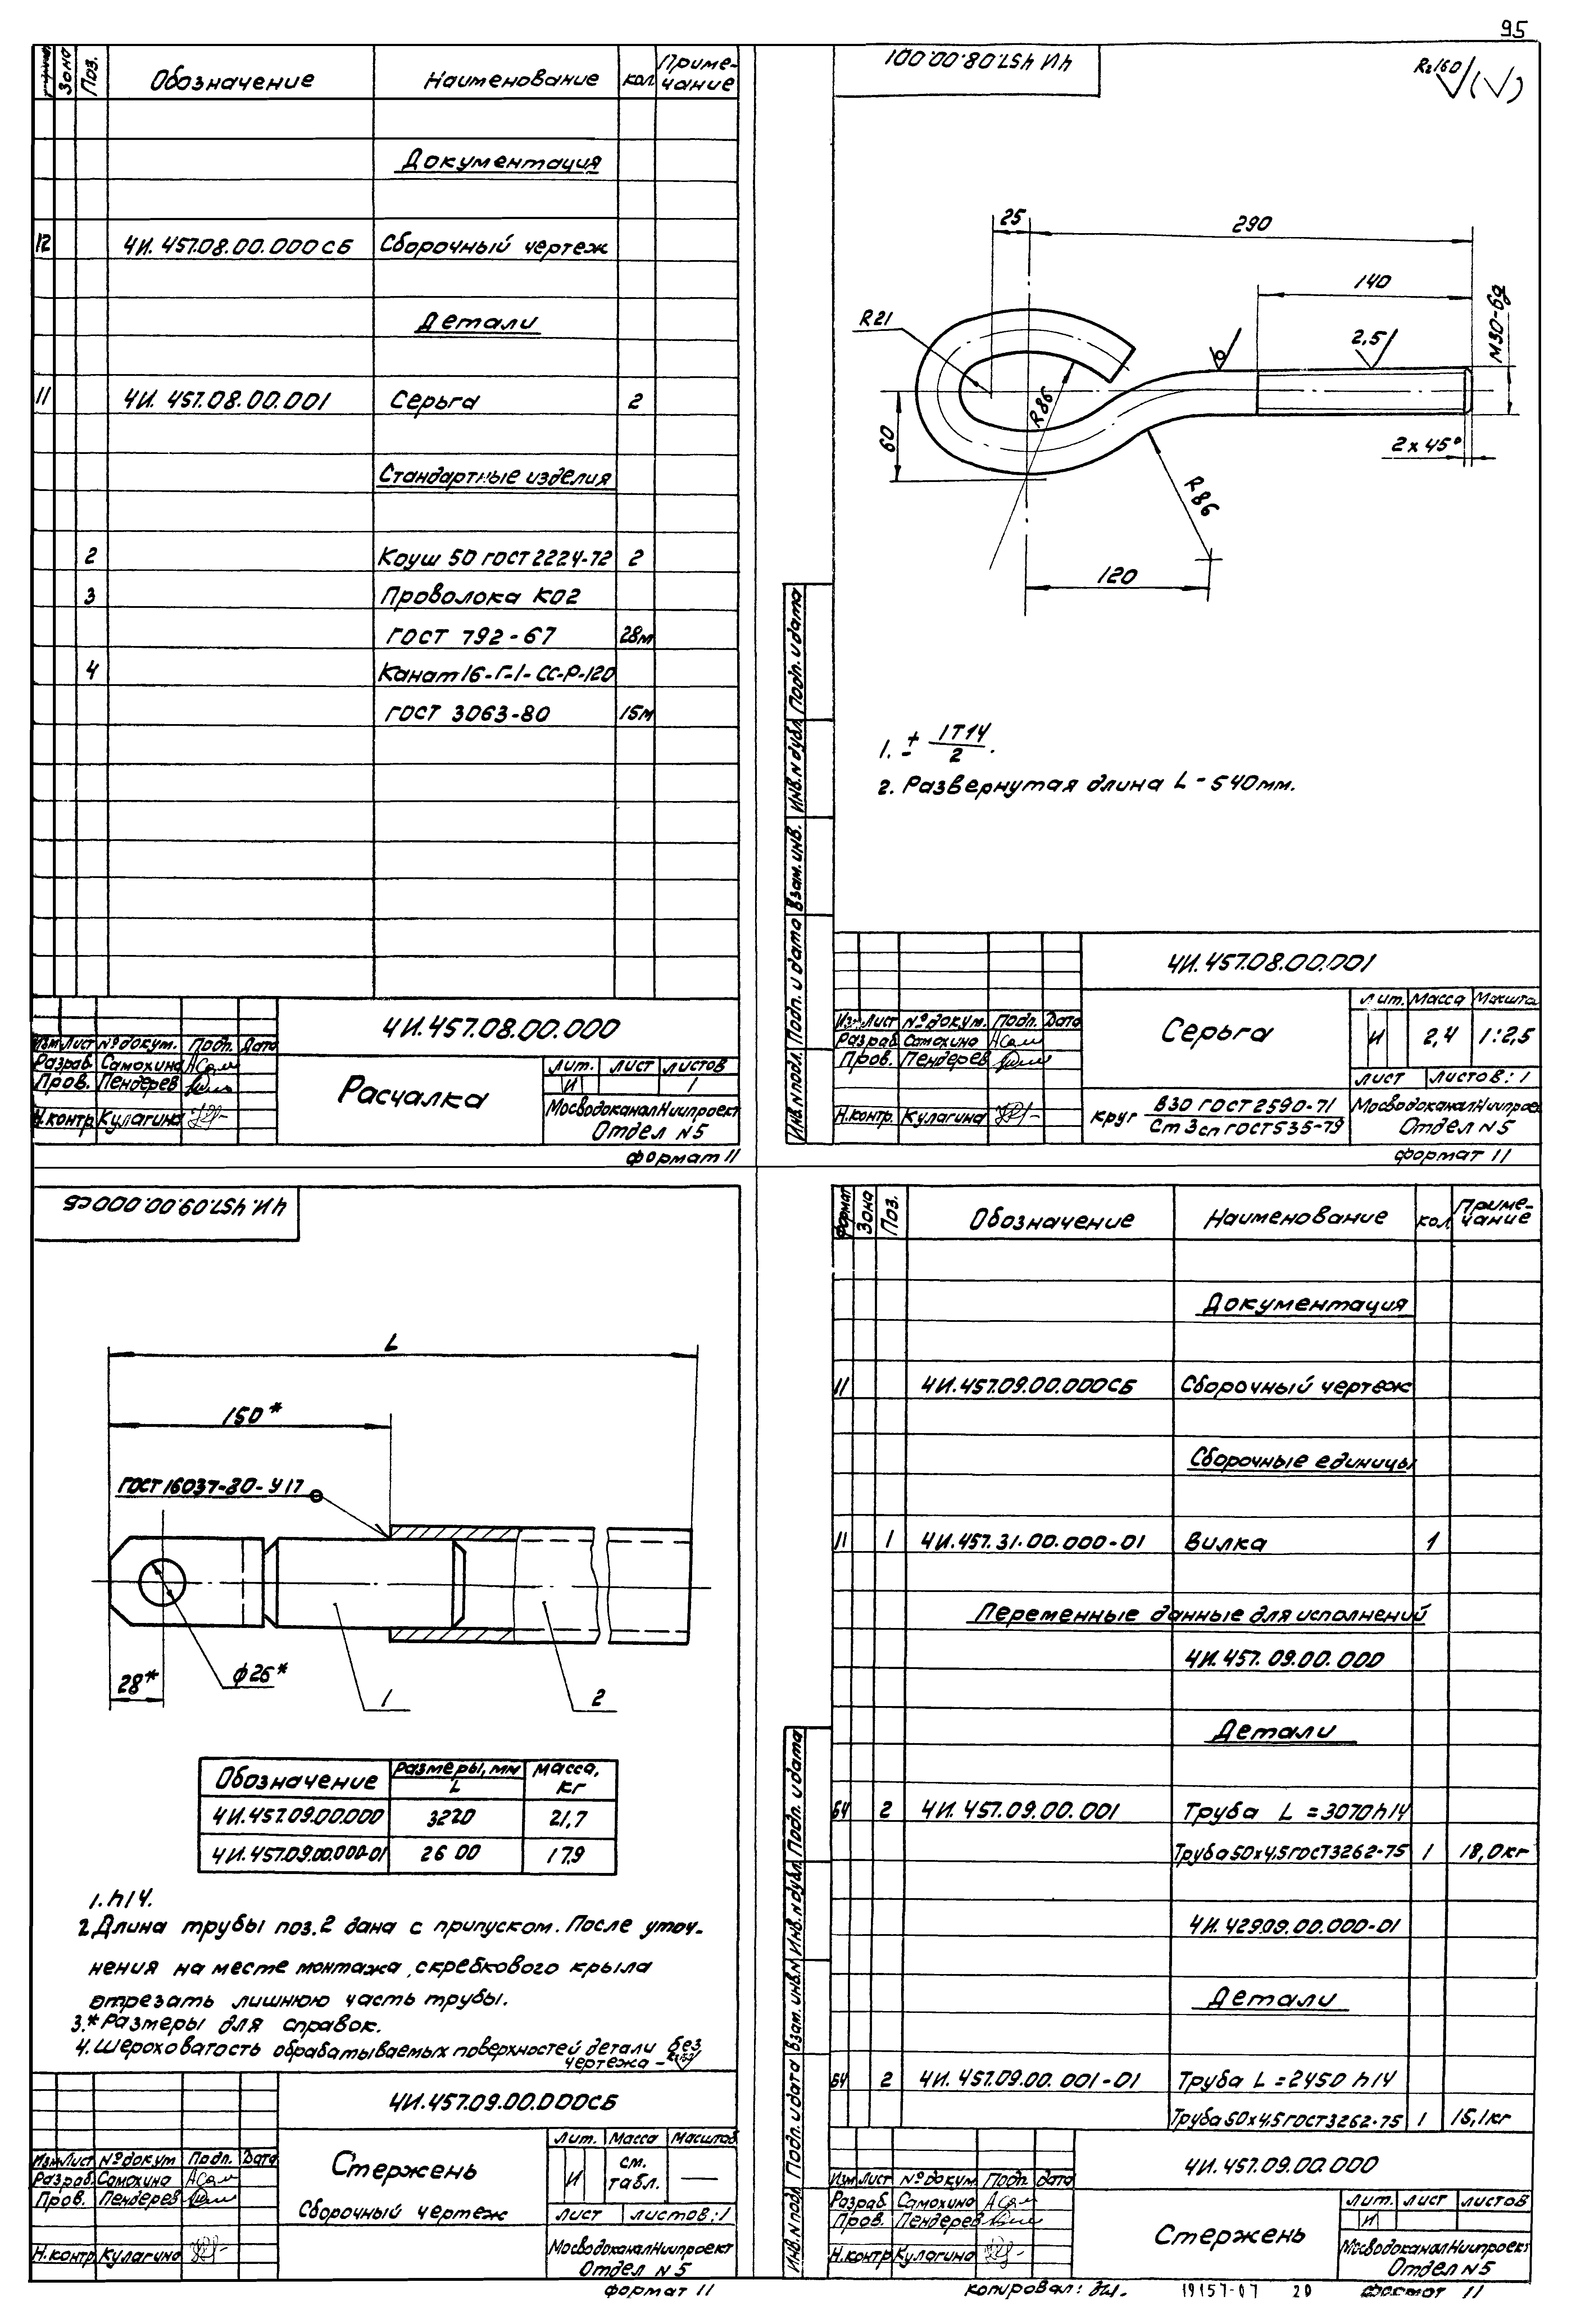 95
Формат Зона Поз. Обозначение Наименование Кол. Примечание
Документация
12 4И.457.08.00.000СБ Сборочный чертеж
Детали
11 4И.457.08.00.001 Серьга 2
Стандартные изделия
2 Коуш 50 ГОСТ 2224-72 2
3 Проволока КО2
ГОСТ 792-67 28м
4 Канат 16-Г-1-СС-Р-120
ГОСТ 3063-80 15м
4И.457.08.00.000
Изм. Лист № докум. Подп. Дата
Разраб. Самохина
Пров. Пендерев
Н.контр. Кулагина
Расчалка
Лит. Лист Листов
И 1
МосводоканалНиипроект
Отдел №5
Формат 11
4И 457.08.00.001
Rz160 (√)
25
290
140
R21
R86
2,5
М30-6g
60
2х45°
R86
120
1. ± IT14/2.
2. Развернутая длина L - 540мм.
Инв.№подл. Подп. и дата Взам.инв. Инв.№дубл. Подп. и дата
4И.457.08.00.001
Изм. Лист № докум. Подп. Дата
Разраб. Самохина
Пров. Пендерев
Н.контр. Кулагина
Серьга
Лит. Масса Масштаб
И 2,4 1:2,5
Лист Листов: 1
Круг В30 ГОСТ 2590-71
Ст 3сп ГОСТ 535-79
МосводоканалНиипроект
Отдел №5
Формат 11
4И.457.09.00.000СБ
L
150*
ГОСТ 16037-80-У17
28*
ф26*
1
2
Обозначение Размеры, мм L Масса, кг
4И.457.09.00.000 3220 21,7
4И.457.09.00.000-01 2600 17,9
1. h14.
2. Длина трубы поз.2 дана с припуском. После уточ-
нения на месте монтажа скребкового крыла
отрезать лишнюю часть трубы.
3.* Размеры для справок.
4. Шероховатость обрабатываемых поверхностей детали без
чертежа -
4И.457.09.00.000СБ
Изм. Лист № докум Подп. Дата
Разраб. Самохина
Пров. Пендерев
Н.контр Кулагина
Стержень
Сборочный чертеж
Лит. Масса Масштаб
И см. табл. —
Лист Листов: 1
МосводоканалНиипроект
Отдел №5
Формат 11
Формат Зона Поз. Обозначение Наименование Кол. Примечание
Документация
11 4И.457.09.00.000СБ Сборочный чертеж
Сборочные единицы
11 1 4И.457.31.00.000-01 Вилка 1
Переменные данные для исполнений
4И.457.09.00.000
Детали
БЧ 2 4И.457.09.00.001 Труба L=3070h14
Труба 50х4.5 ГОСТ 3262-75 1 18,0кг
4И.429.09.00.000-01
Детали
БЧ 2 4И.457.09.00.001-01 Труба L=2450 h14
Труба 50х4.5 ГОСТ 3262-75 1 15,1кг
Инв.№подл. Подп. и дата Взам.инв.№ Инв.№дубл. Подп. и дата
4И.457.09.00.000
Изм. Лист № докум. Подп. Дата
Разраб. Самохина
Пров. Пендерев
Н.контр. Кулагина
Стержень
Лит. Лист Листов
И
МосводоканалНиипроект
Отдел №5
Копировал:
19157-07 20
Формат 11